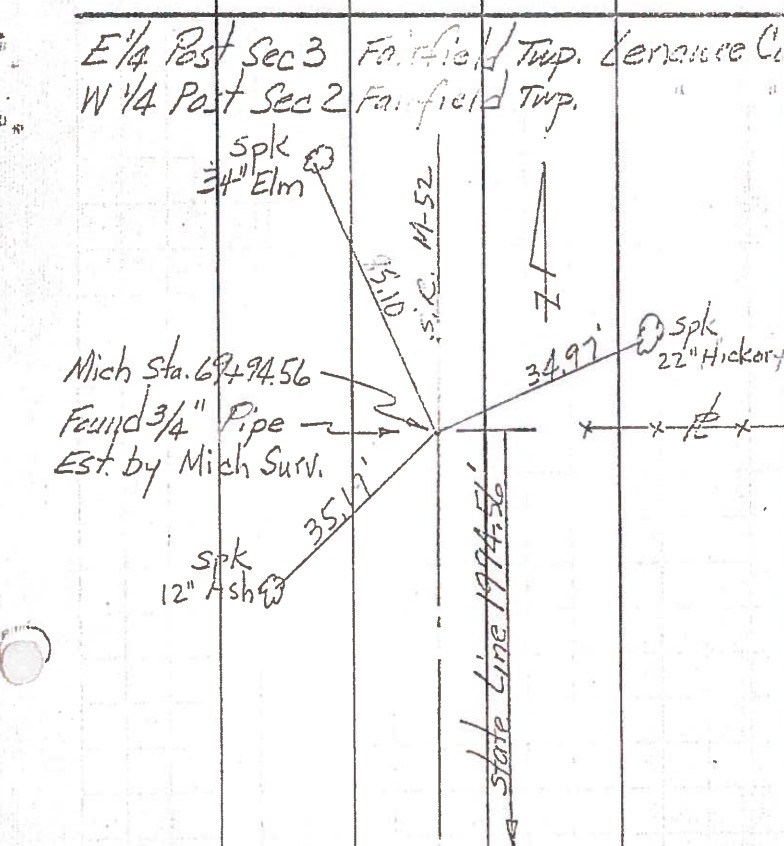 E 1/4 Post Sec 3 Fairfield Twp. Lenawee
W 1/4 Post Sec 2 Fairfield Twp.
spk
34" Elm
S.R. M-52
spk
22" Hickory
34.97'
Mich Sta. 69+94.56
Found 3/4" Pipe
Est. by Mich Surv.
spk
12" Ash
State Line 1994.56'